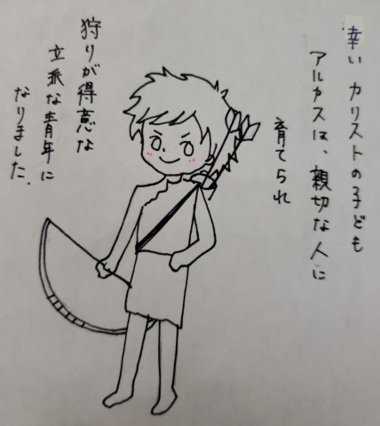 幸い カリストの子ども
アルカスは、親切な人に
育てられ
狩りが得意な
立派な青年に
なりました.